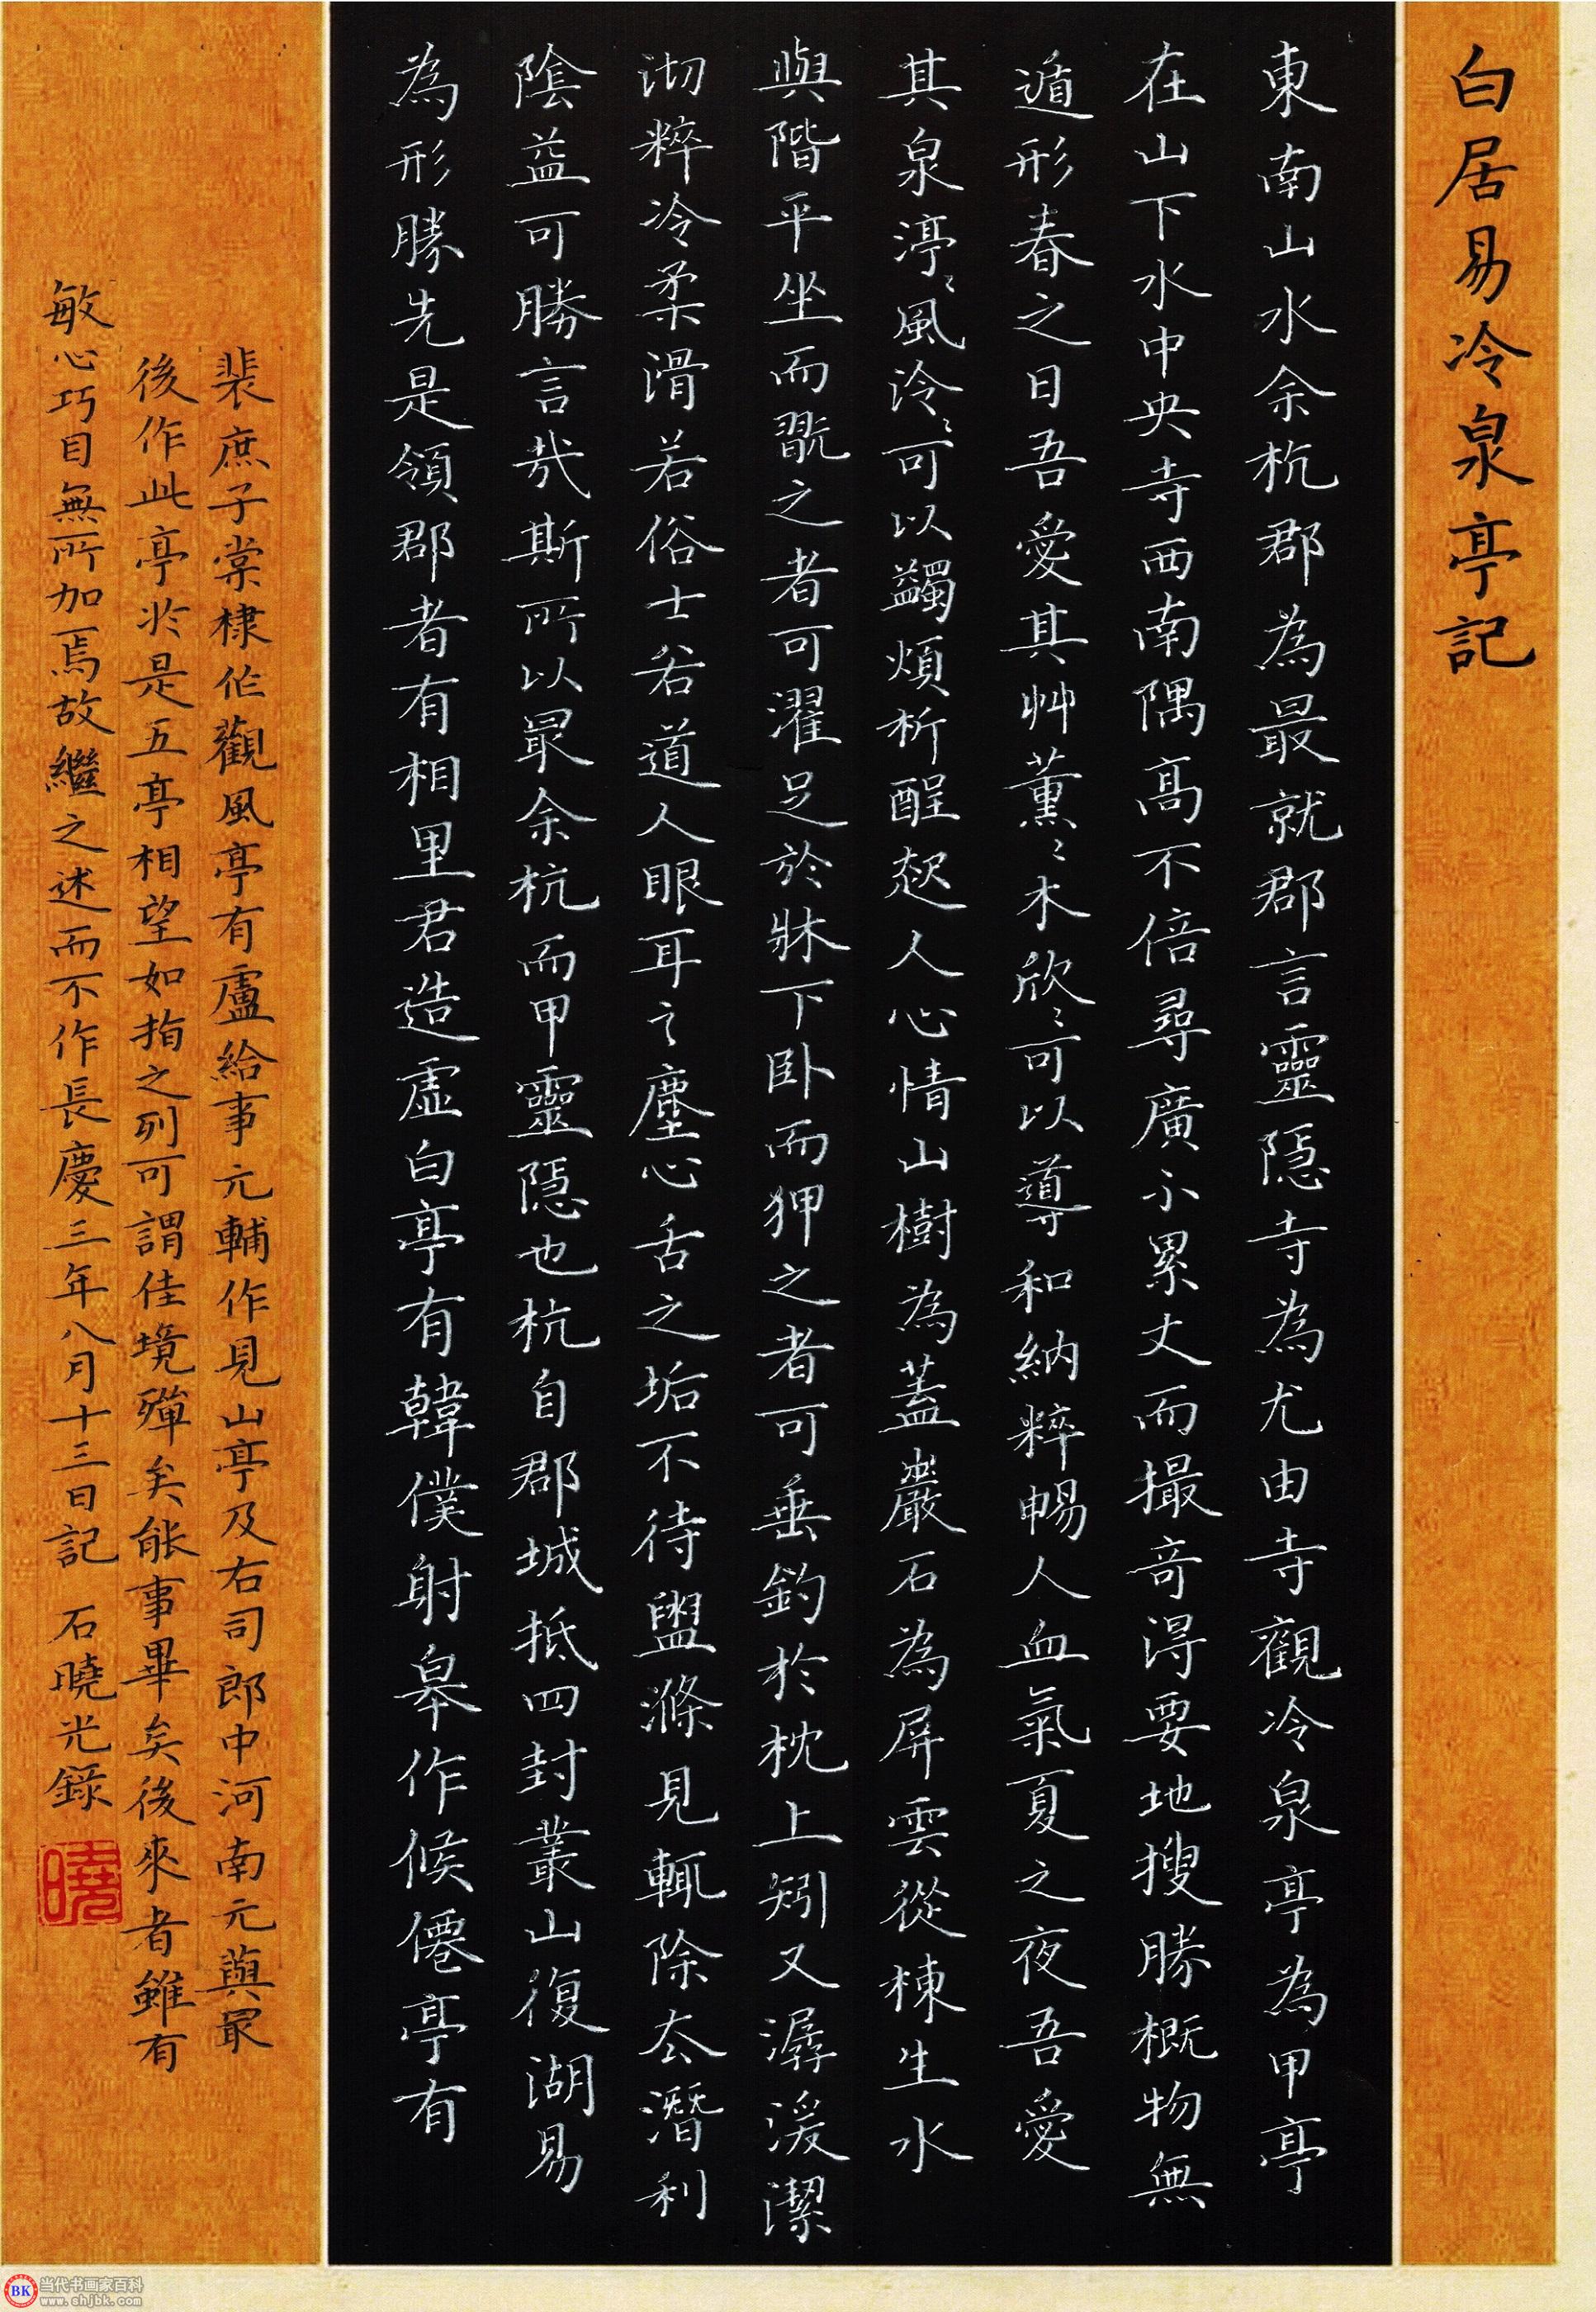 白居易冷泉亭記
東南山水余杭郡為最就郡言靈隱寺為尤由寺觀冷泉亭為甲亭
在山下水中央寺西南隅高不倍尋廣不累丈而撮奇得要地搜勝概物無
遁形春之日吾愛其艸薰〻木欣〻可以導和納粹暢人血氣夏之夜吾愛
其泉渟〻風泠〻可以蠲煩析酲起人心情山樹為蓋巖石為屏雲從棟生水
與階平坐而翫之者可濯足於牀下卧而狎之者可垂釣於枕上矧又潺湲潔
沏粹冷柔滑若俗士若道人眼耳之塵心舌之垢不待盥滌見輒除去潛利
陰益可勝言哉斯所以最余杭而甲靈隱也杭自郡城抵四封叢山復湖易
為形勝先是領郡者有相里君造虛白亭有韓僕射皋作候僊亭有
裴庶子棠棣作觀風亭有盧給事元輔作見山亭及右司郎中河南元藇最
後作此亭於是五亭相望如指之列可謂佳境殫矣能事畢矣後來者雖有
敏心巧目無所加焉故繼之述而不作長慶三年八月十三日記 石曉光錄
曉
BK 当代书画家百科
www.shjbk.com